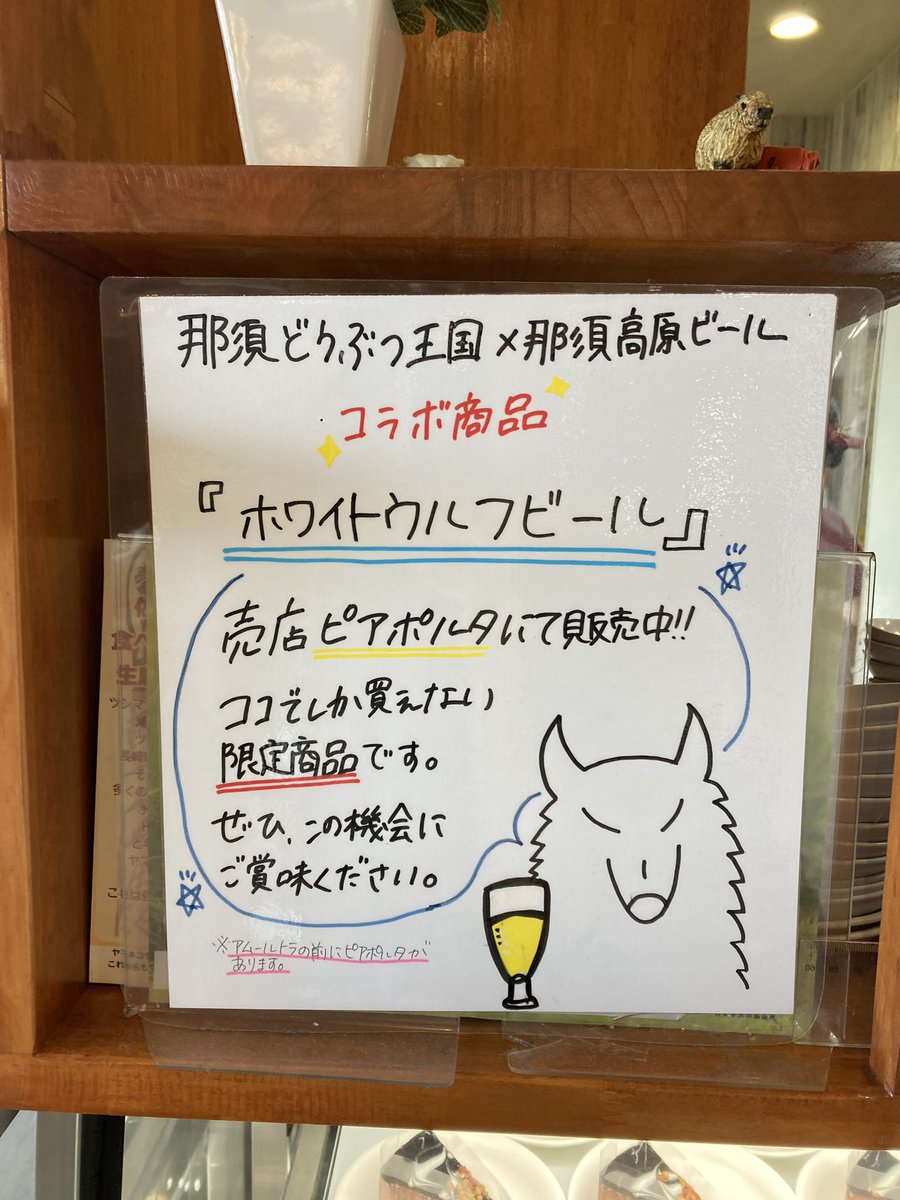 那須どうぶつ王国×那須高原ビール
コラボ商品
『ホワイトウルフビール』
売店ピアポルタにて販売中!!
ココでしか買えない
限定商品です。
ぜひ、この機会に
ご賞味ください。
※アムールトラの前にピアポルタが
あります。